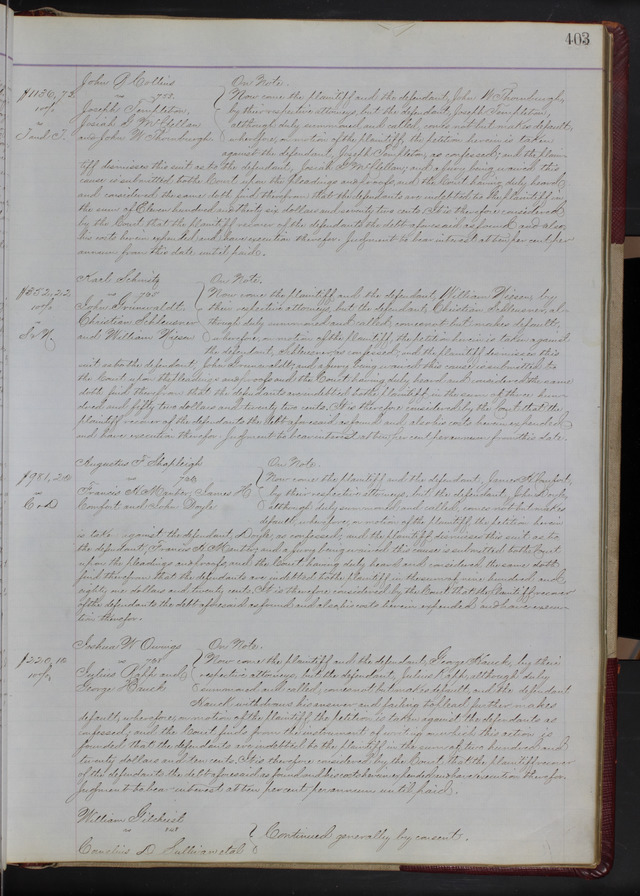 403
John P. Collins On Note.
$1136,72 vs 722. Now come the plaintiff and the defendant, John W. Thornburgh,
10% Joseph Templeton, by their respective attorneys, but the defendant, Joseph Templeton,
Josiah G. McClellan although duly summoned and called, comes not but makes default;
J and T. and John W. Thornburgh wherefore, on motion of the plaintiff, the petition herein is taken
against the defendant, Joseph Templeton, as confessed; and the plain-
tiff dismisses this suit as to the defendant, Josiah G. McClellan; and a jury being waived this
cause is submitted to the Court upon the pleadings and proofs, and the Court having duly heard
and considered the same doth find therefrom that the defendants are indebted to the plaintiff in
the sum of Eleven hundred and thirty six dollars and seventy two cents. It is therefore considered
by the Court that the plaintiff recover of the defendants the debt aforesaid as found and also
his costs herein expended, and have execution therefor. Judgment to bear interest at ten per cent per
annum from this date until paid.
Karl Schmitz On Note.
$352.22 vs Now come the plaintiff and the defendant, William Nissen, by
10% John Grunewaldt, their respective attorneys, but the defendant, Christian Schleusner, al-
Christian Schleusner though duly summoned and called, comes not but makes default;
and William Nissen wherefore, on motion of the plaintiff, the petition herein is taken against
the defendant, Schleusner, as confessed; and the plaintiff dismisses this
suit as to the defendant, John Grunewaldt; and a jury being waived this cause is submitted to
the Court upon the pleadings and proofs and the Court having duly heard and considered the same
doth find therefrom that the defendants are indebted to the plaintiff in the sum of three hun-
dred and fifty two dollars and twenty two cents. It is therefore considered by the Court that the
plaintiff recover of the defendants the debt aforesaid as found, and also his costs herein expended
and have execution therefor. Judgment to bear interest at ten per cent per annum from this date.
Augustus F. Shapleigh On Note.
$981,20 vs Now come the plaintiff and the defendant, James H. Comfort,
Francis A. James H. by their respective attorneys, but the defendant, John Doyle,
Comfort and John Doyle although duly summoned and called, comes not but makes
default; wherefore, on motion of the plaintiff, the petition herein
is taken against the defendant, Doyle, as confessed; and the plaintiff dismisses this suit as to
the defendant, Francis A. and a jury being waived this cause is submitted to the Court
upon the pleadings and proofs, and the Court having duly heard and considered the same doth
find therefrom that the defendants are indebted to the plaintiff in the sum of nine hundred and
eighty one dollars and twenty cents. It is therefore considered by the Court that the plaintiff recover
of the defendants the debt aforesaid as found and also his costs herein expended and have execu-
tion therefor.
Joshua W. Owings On Note.
$220,10 vs Now come the plaintiff and the defendant, George Hauck, by their
10% Julius Rapp and respective attorneys, but the defendant, Julius Rapp, although duly
George Hauck summoned and called, comes not but makes default; and the defendant
Hauck withdraws his answer and failing to plead further makes
default; wherefore, on motion of the plaintiff, the petition is taken against the defendants as
confessed; and the Court finds from the instrument of writing on which this action is
founded that the defendants are indebted to the plaintiff in the sum of two hundred and
twenty dollars and ten cents. It is therefore considered by the Court that the plaintiff recover
of the defendants the debt aforesaid as found and his costs herein expended and have execution therefor.
Judgment to bear interest at ten per cent per annum until paid.
William Gilchrist
vs Continued generally by consent.
Cornelius D. Sullivan et al